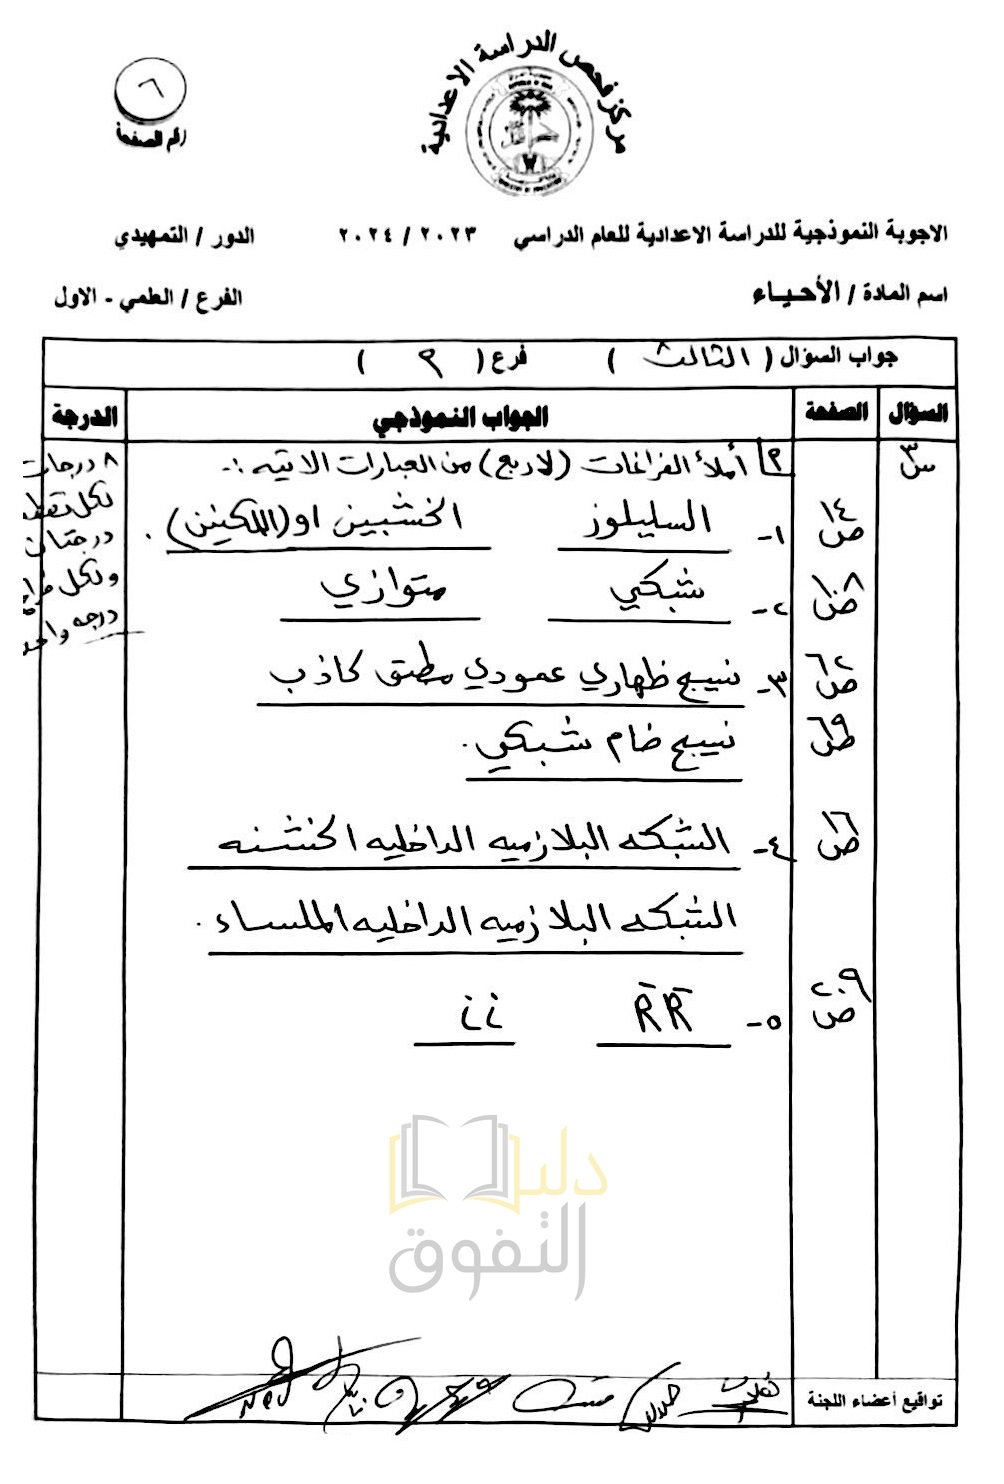 مركز فحص الدراسة الاعدادية
٦
رقم الصفحة
الاجوبة النموذجية للدراسة الاعدادية للعام الدراسي ٢٠٢٣ / ٢٠٢٤ الدور / التمهيدي
اسم المادة / الأحياء الفرع / العلمي - الاول
جواب السؤال ( الثالث ) فرع ( م )
السؤال الصفحة الجواب النموذجي الدرجة
س٣ م أملأ الفراغات (لاربع) من العبارات الاتيه :- ٨ درجات
ص١٤ ١- السليلوز الخشبين او (اللكنين) . لكل نقطة درجتان
ص١٠٨ ٢- شبكي متوازي ولكل فراغ درجه واحد
ص٦٢ ٣- نسيج ظهاري عمودي مطبق كاذب
ص٦٩ نسيج ضام شبكي .
ص١٦ ٤- الشبكه البلازميه الداخليه الخشنه
الشبكه البلازميه الداخليه الملساء .
ص٢٠٩ ٥- R̄R̄ ii
دليل
التفوق
تواقيع أعضاء اللجنة